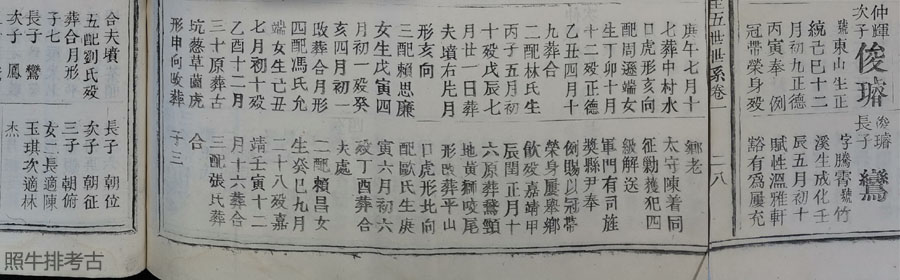 仲輝
次子 俊璿
號東山生正
統己巳十二
月初九正德
丙寅奉 例
冠帶榮身殁
俊璿
長子 鸞
字騰霄號竹
溪生成化壬
辰五月初十
賦性溫雅軒
豁有爲屢充
至五世世系卷一
二八
庚午七月十
七葬中村水
口虎形亥向
配周邏端女
生丁卯十月
十二殁正德
乙丑四月十
九葬合
二配林氏生
丙子五月初
十殁戊辰七
月廿一日葬
夫墳右片月
形亥向
三配賴思廉
女生戊寅四
月初一殁癸
亥四月初一
改葬合月形
四配馮氏允
端女生己丑
七月初十殁
乙酉十二月
三十原葬古
坑葱草崗虎
形申向改葬
鄉老
太守陳着同
征勦獲犯四
級解送
軍門有司旌
獎縣尹奉
例賜以冠帶
榮身屢舉鄉
飲殁嘉靖甲
辰閏正月十
六原葬鵞頸
地黄獅唛尾
形改葬平山
口虎形北向
配歐氏生庚
寅六月初六
殁丁酉葬合
夫處
二配賴昌女
生癸巳九月
二十八殁嘉
靖壬寅十二
月十六葬合
三配張氏葬
合
子三
合夫墳
五配劉氏殁
葬合月形
子七
長子 鸞
次子 鳳
長子 朝位
次子 朝征
三子 朝俯
女二長適陳
玉琪次適林
杰
照牛排考古